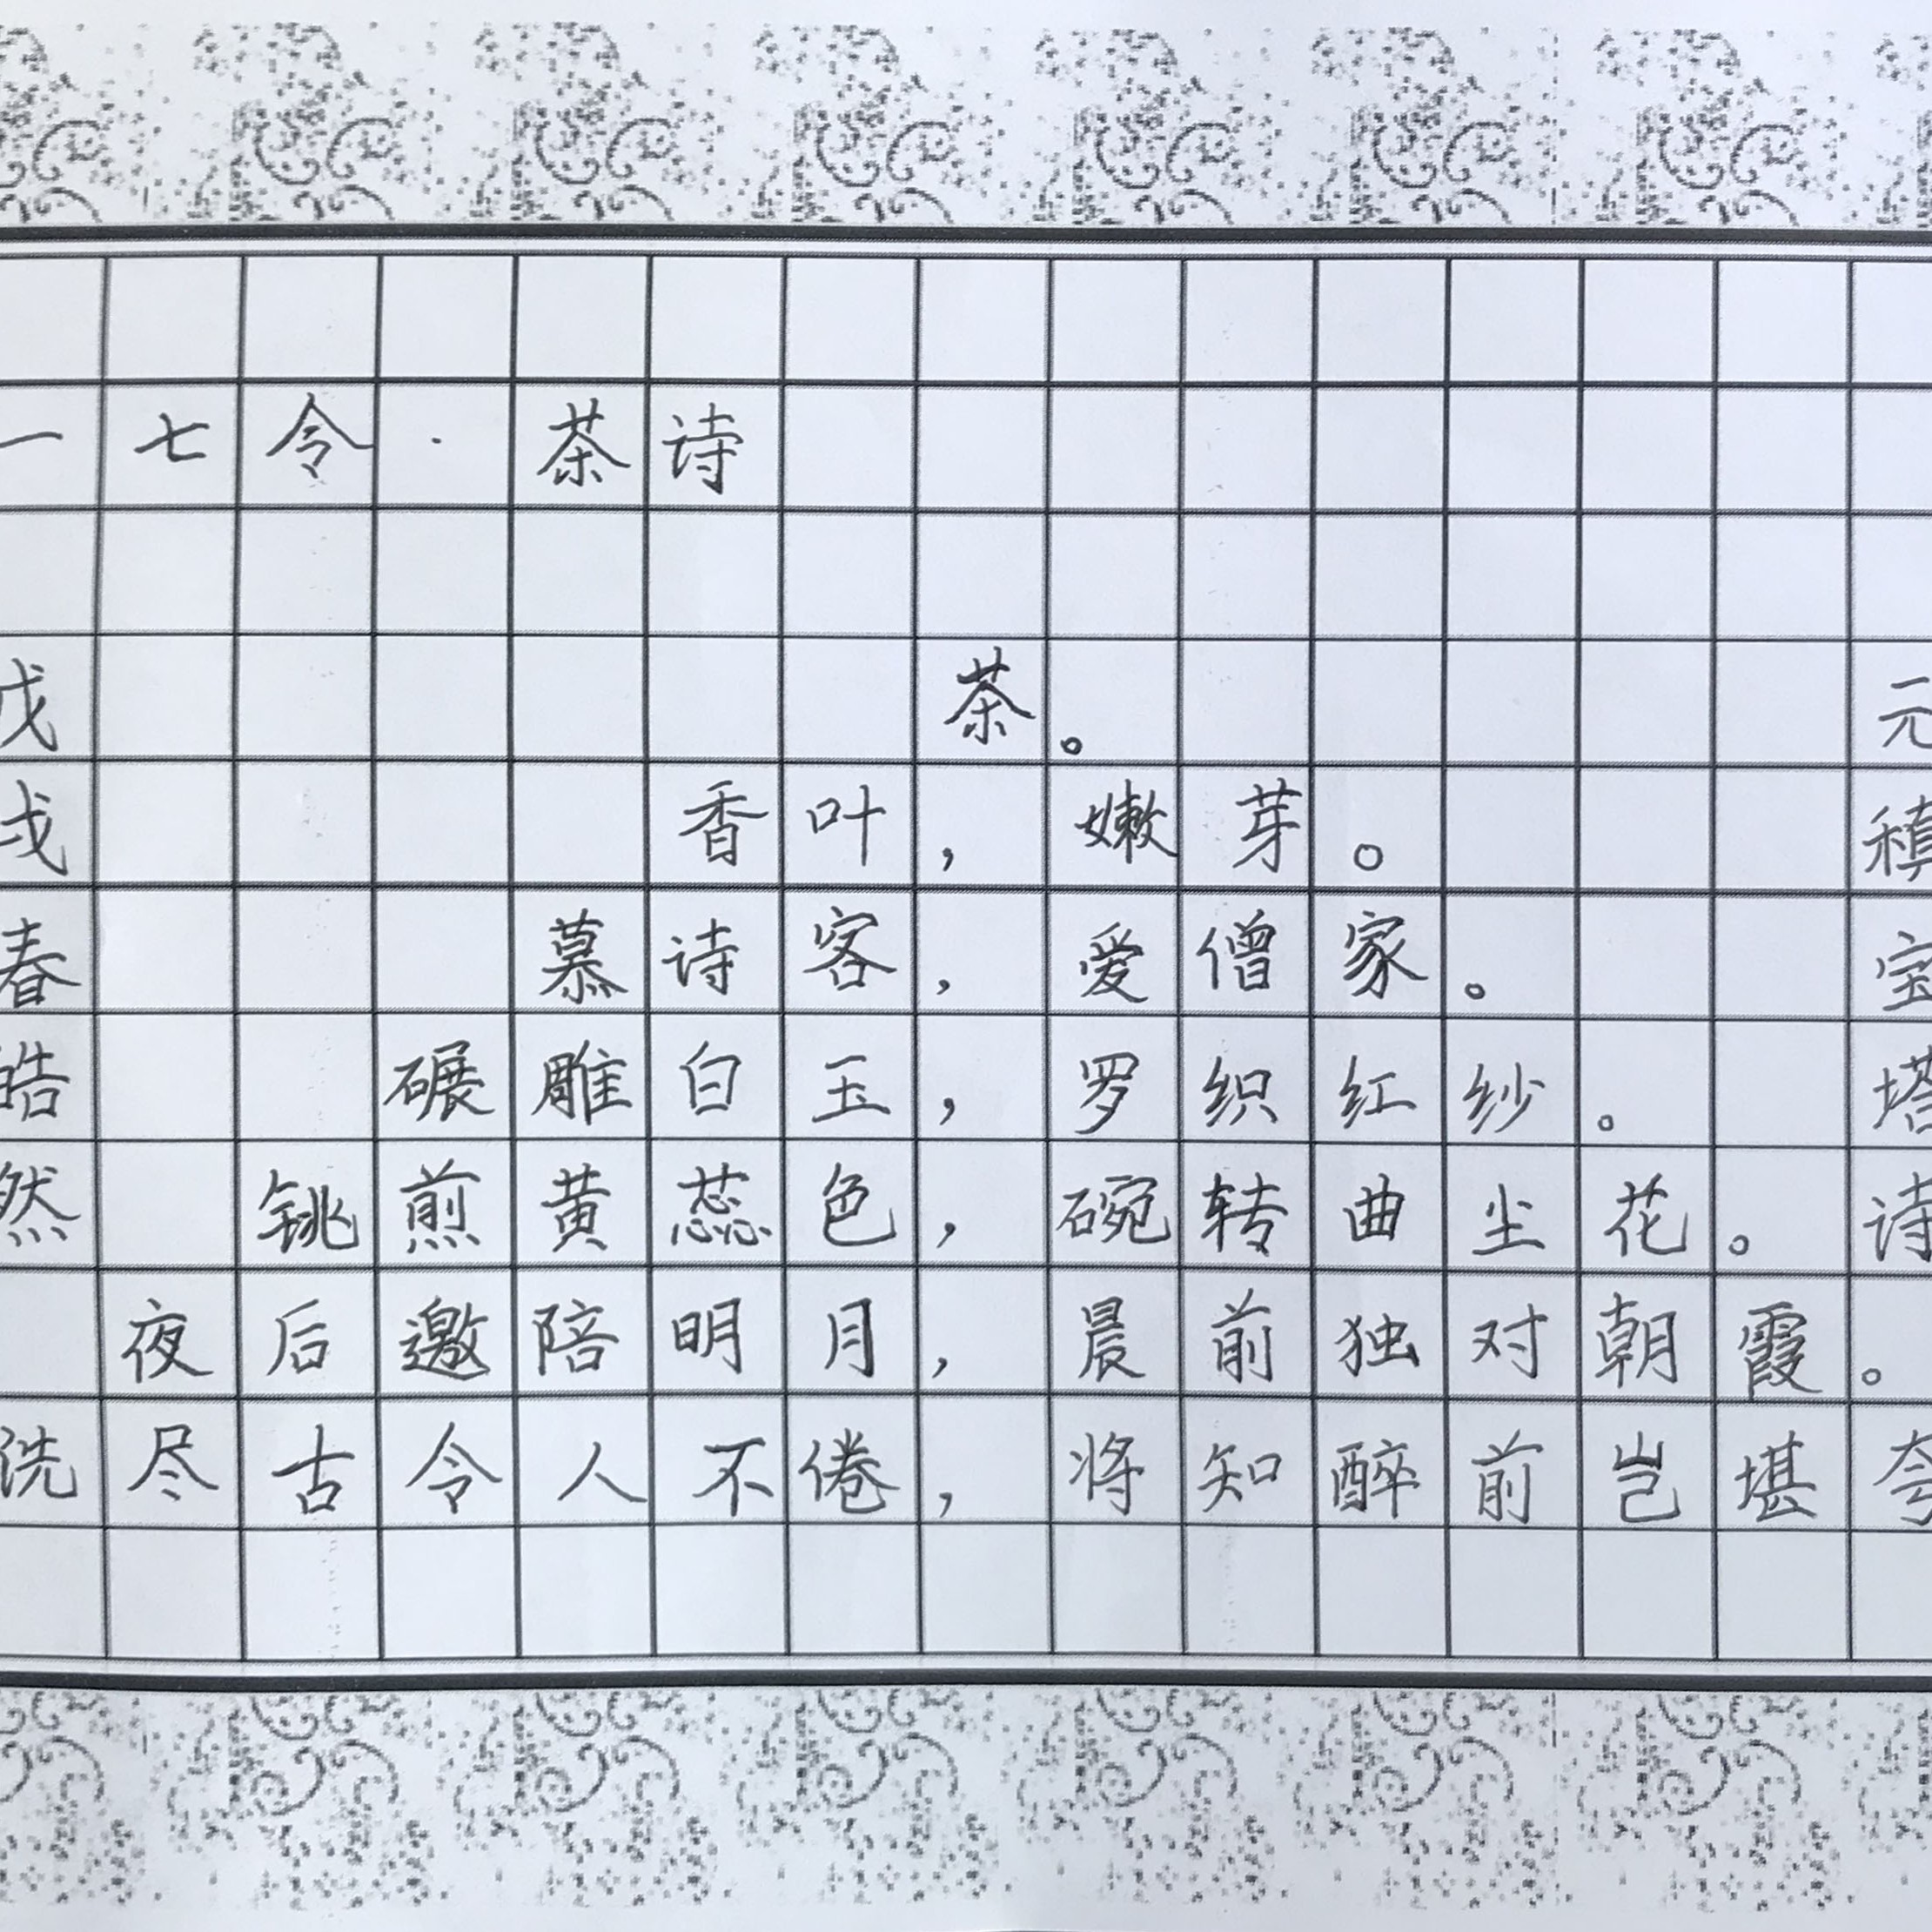 一七令·茶诗
元稹宝塔诗
茶。
香叶，嫩芽。
慕诗客，爱僧家。
碾雕白玉，罗织红纱。
铫煎黄蕊色，碗转曲尘花。
夜后邀陪明月，晨前独对朝霞。
洗尽古令人不倦，将知醉前岂堪夸
戊戌春皓然